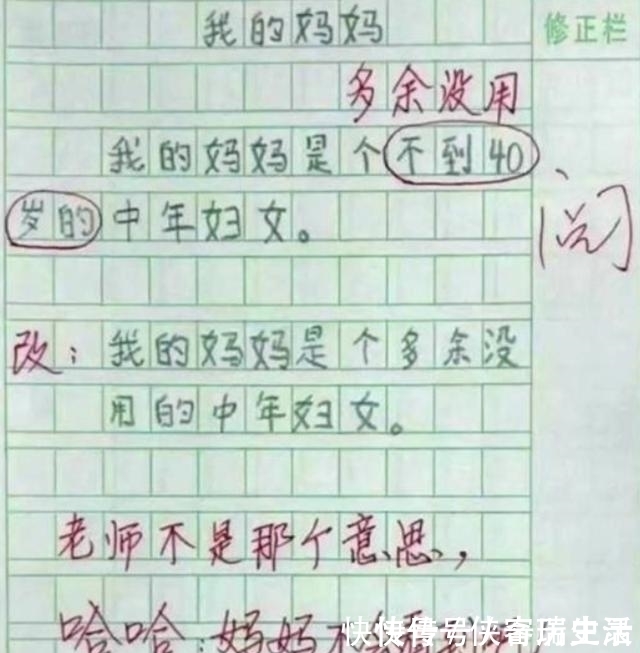 我的妈妈
修正栏
多余没用
我的妈妈是个不到40
岁的中年妇女。
阅
改：我的妈妈是个多余没
用的中年妇女。
老师不是那个意思，
哈哈，妈妈不会
快传号
侠客瑞生活